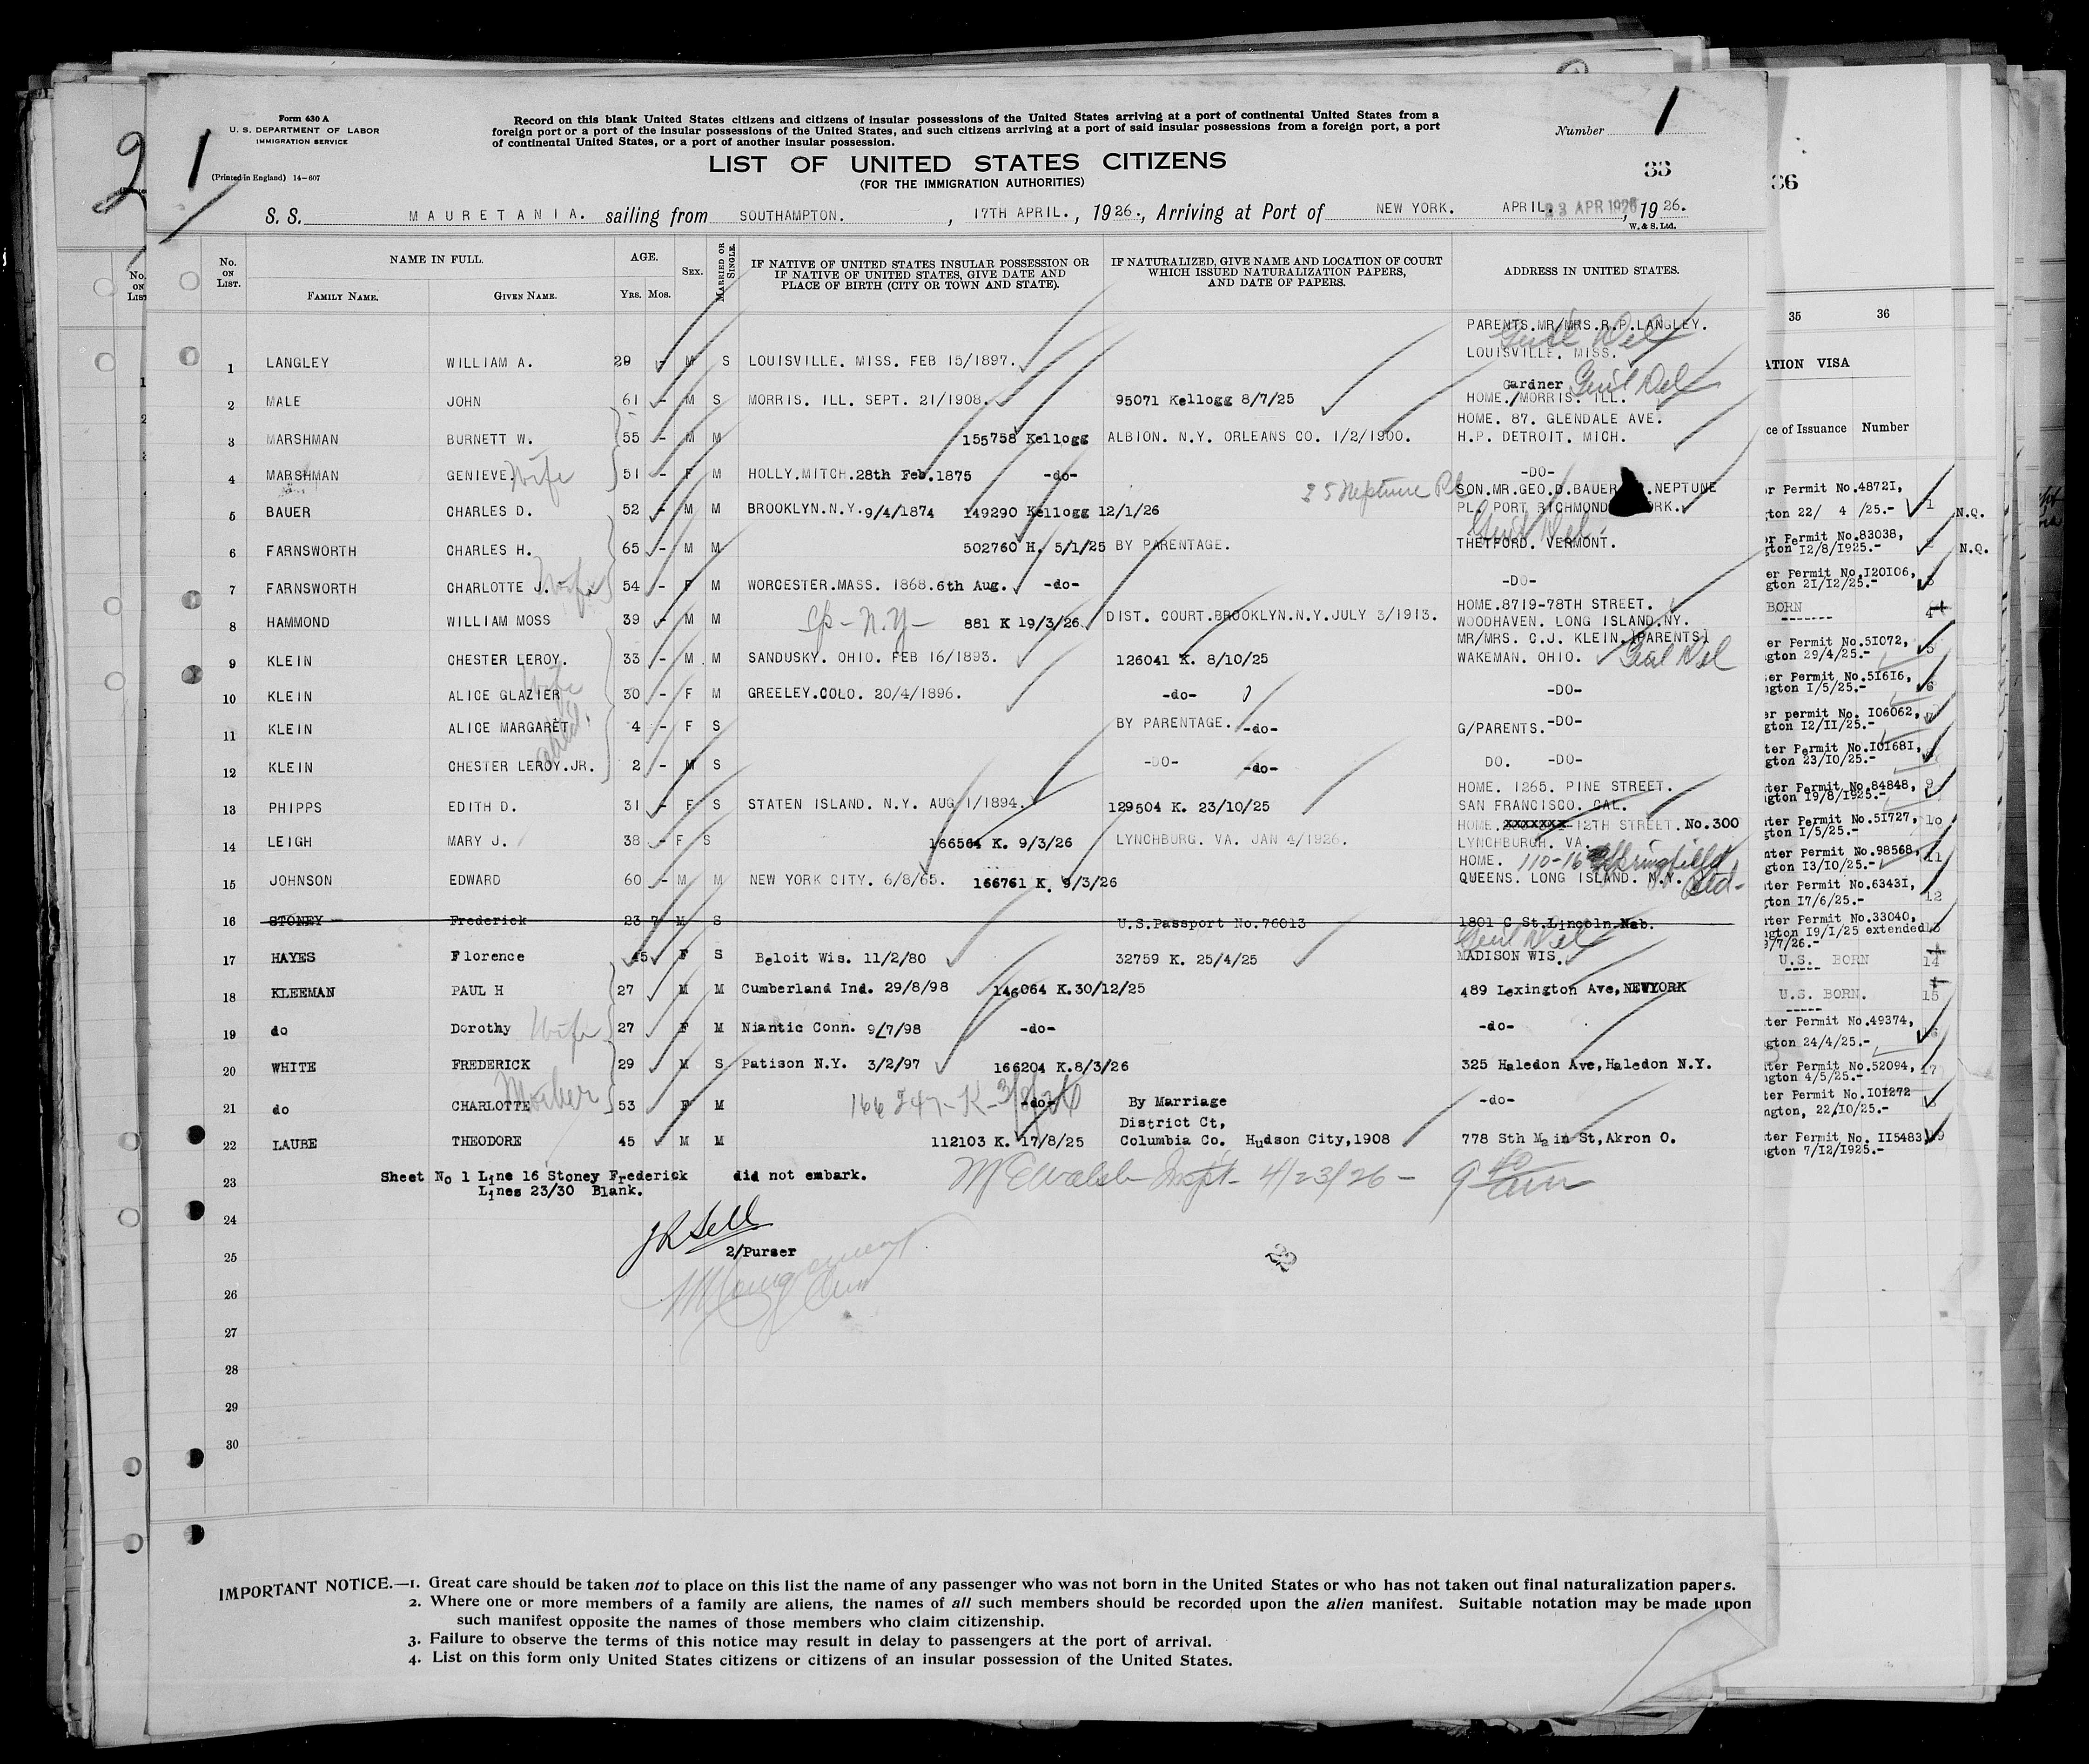 Form 630 A
U. S. DEPARTMENT OF LABOR
IMMIGRATION SERVICE
(Printed in England) 14—607
2
1
Record on this blank United States citizens and citizens of insular possessions of the United States arriving at a port of continental United States from a
foreign port or a port of the insular possessions of the United States, and such citizens arriving at a port of said insular possessions from a foreign port, a port
of continental United States, or a port of another insular possession.
Number 1
LIST OF UNITED STATES CITIZENS
(FOR THE IMMIGRATION AUTHORITIES)
33
36
S. S. MAURETANIA. sailing from SOUTHAMPTON. , 17TH APRIL. , 1926., Arriving at Port of NEW YORK. APRIL. 23 APR 1926, 1926.
W. & S. Ltd.
No. ON LIST. NAME IN FULL. AGE. SEX. MARRIED OR SINGLE. IF NATIVE OF UNITED STATES INSULAR POSSESSION OR IF NATIVE OF UNITED STATES, GIVE DATE AND PLACE OF BIRTH (CITY OR TOWN AND STATE). IF NATURALIZED, GIVE NAME AND LOCATION OF COURT WHICH ISSUED NATURALIZATION PAPERS, AND DATE OF PAPERS. ADDRESS IN UNITED STATES.
FAMILY NAME. GIVEN NAME. YRS. MOS.
PARENTS.MR/MRS.R.P.LANGLEY.
1 LANGLEY WILLIAM A. 29 - M S LOUISVILLE. MISS. FEB 15/1897. LOUISVILLE. MISS. Genl Del
Gardner Genl Del
2 MALE JOHN 61 - M S MORRIS. ILL. SEPT. 21/1908. 95071 Kellogg 8/7/25 HOME./MORRIS. ILL.
HOME. 87. GLENDALE AVE.
3 MARSHMAN BURNETT W. 55 - M M 155758 Kellogg ALBION. N.Y. ORLEANS CO. 1/2/1900. H.P. DETROIT. MICH.
4 MARSHMAN GENIEVE. Wife 51 - F M HOLLY.MITCH.28th Feb.1875 -do- -DO-
25 Neptune Pl SON.MR.GEO.D.BAUER NEPTUNE
5 BAUER CHARLES D. 52 - M M BROOKLYN.N.Y.9/4/1874 149290 Kellogg 12/1/26 PL. PORT RICHMOND RK.
Genl Del
6 FARNSWORTH CHARLES H. 65 - M M 502760 H. 5/1/25 BY PARENTAGE. THETFORD. VERMONT.
7 FARNSWORTH CHARLOTTE J. Wife 54 - F M WORCESTER.MASS. 1868.6th Aug. -do- -DO-
HOME.8719-78TH STREET.
8 HAMMOND WILLIAM MOSS 39 - M M N.Y 881 K 19/3/26. DIST. COURT.BROOKLYN.N.Y.JULY 3/1913. WOODHAVEN. LONG ISLAND.NY.
MR/MRS. C.J. KLEIN.(PARENTS)
9 KLEIN CHESTER LEROY. 33 - M M SANDUSKY. OHIO. FEB 16/1893. 126041 K. 8/10/25 WAKEMAN. OHIO. Genl Del
10 KLEIN ALICE GLAZIER Wife 30 - F M GREELEY.COLO. 20/4/1896. -do- -DO-
11 KLEIN ALICE MARGARET 4 - F S BY PARENTAGE. -do- G/PARENTS. -DO-
12 KLEIN CHESTER LEROY.JR. 2 - M S -DO- -do- DO. -DO-
HOME. 1265. PINE STREET.
13 PHIPPS EDITH D. 31 - F S STATEN ISLAND. N.Y. AUG 1/1894. 129504 K. 23/10/25 SAN FRANCISCO. CAL.
HOME. xxxxxxx 12TH STREET. No.300
14 LEIGH MARY J. 38 - F S 166564 K. 9/3/26 LYNCHBURG. VA. JAN 4/1926. LYNCHBURGH. VA.
HOME. 110-16 Springfield
15 JOHNSON EDWARD 60 - M M NEW YORK CITY. 6/8/65. 166761 K. 9/3/26 QUEENS. LONG ISLAND. N.Y.
16 STONEY Frederick 23 7 M S U.S.Passport No.76013 1801 C St.Lincoln.Neb.
Genl Del
17 HAYES Florence 45 F S Beloit Wis. 11/2/80 32759 K. 25/4/25 MADISON WIS.
18 KLEEMAN PAUL H 27 M M Cumberland Ind. 29/8/98 146064 K.30/12/25 489 Lexington Ave,NEWYORK
19 do Dorothy Wife 27 F M Niantic Conn. 9/7/98 -do- -do-
20 WHITE FREDERICK 29 M S Patison N.Y. 3/2/97 166204 K.8/3/26 325 Haledon Ave,Haledon N.Y.
21 do CHARLOTTE Mother 53 F M 166247-K-3/8/26 -do- By Marriage -do-
District Ct,
22 LAUBE THEODORE 45 M M 112103 K. 17/8/25 Columbia Co. Hudson City,1908 778 Sth Main St,Akron O.
23 Sheet No 1 Line 16 Stoney Frederick did not embark. 4/23/26-
Lines 23/30 Blank.
24
2/Purser
22
25
26
27
28
29
30
35 36
ATION VISA
ce of Issuance Number
er Permit No.48721,
gton 22/ 4 /25.- 1 N.Q.
er Permit No.83038,
gton 12/8/1925.- 2 N.Q.
er Permit No.120106,
gton 21/12/25.- 3
BORN 4
er Permit No.51072,
gton 29/4/25.- 5
er Permit No.51616,
ngton 1/5/25.- 6
er permit No. 106062,
gton 12/11/25.- 7
ter Permit No.101681,
ngton 23/10/25.-
ter Permit No.84848, 9
gton 19/8/1925.-
nter Permit No.51727, 10
gton 1/5/25.-
nter Permit No.98568, 11
gton 13/10/25.-
ter Permit No.63431,
ton 17/6/25.- 12
ter Permit No.33040,
ngton 19/1/25 extended 13
9/7/26.-
U.S. BORN 14
U.S. BORN. 15
ter Permit No.49374,
gton 24/4/25.- 16
ter Permit No.52094, 17
ngton 4/5/25.-
ter Permit No.101272
ngton, 22/10/25.- 18
ter Permit No. 115483 19
gton 7/12/1925.-
IMPORTANT NOTICE.—1. Great care should be taken not to place on this list the name of any passenger who was not born in the United States or who has not taken out final naturalization papers.
2. Where one or more members of a family are aliens, the names of all such members should be recorded upon the alien manifest. Suitable notation may be made upon
such manifest opposite the names of those members who claim citizenship.
3. Failure to observe the terms of this notice may result in delay to passengers at the port of arrival.
4. List on this form only United States citizens or citizens of an insular possession of the United States.